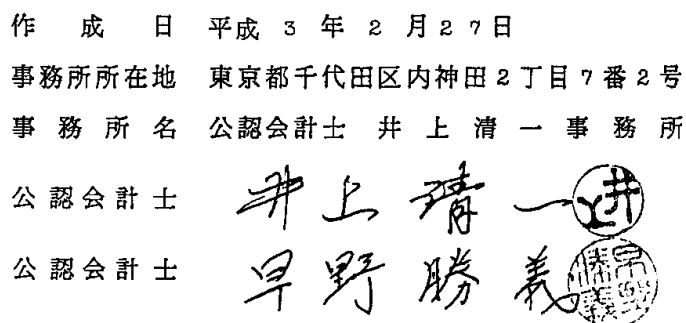 作成日 平成3年2月27日
事務所所在地 東京都千代田区内神田2丁目7番2号
事務所名 公認会計士 井上清一事務所
公認会計士 井上清一 井上
公認会計士 早野勝義